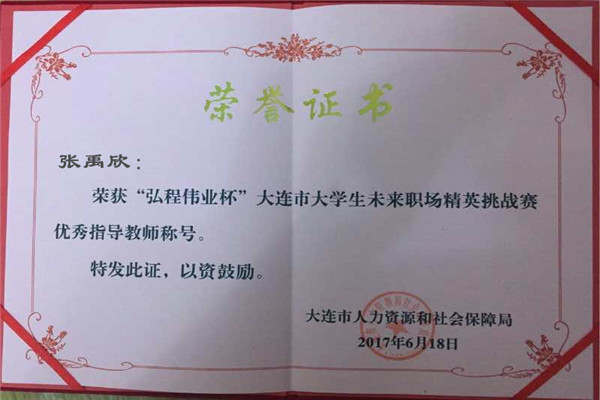 荣誉证书
张禹欣：
荣获“弘程伟业杯”大连市大学生未来职场精英挑战赛
优秀指导教师称号。
特发此证，以资鼓励。
大连市人力资源和社会保障局
2017年6月18日